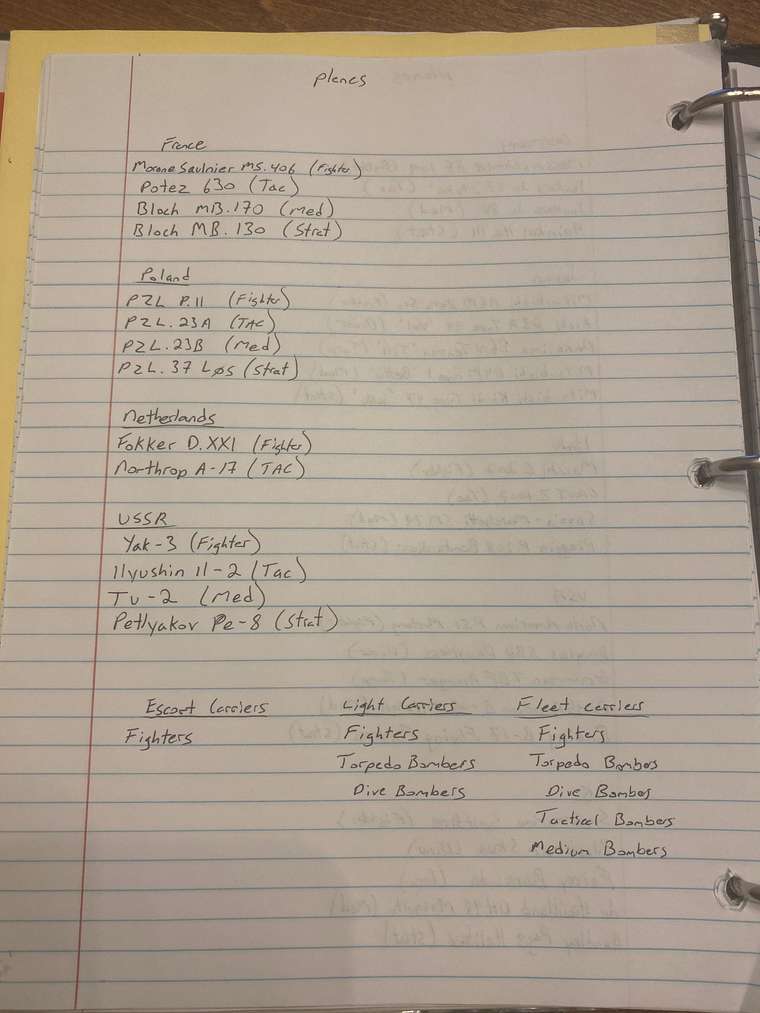 Planes
France
Morane Saulnier MS.406 (Fighter)
Potez 630 (Tac)
Bloch MB.170 (Med)
Bloch MB.130 (Strat)
Poland
PZL P.11 (Fighter)
PZL.23A (TAC)
PZL.23B (Med)
PZL.37 Løs (Strat)
Netherlands
Fokker D.XXI (Fighter)
Northrop A-17 (TAC)
USSR
Yak-3 (Fighter)
Ilyushin Il-2 (Tac)
Tu-2 (Med)
Petlyakov Pe-8 (Strat)
Escort Carriers Light Carriers Fleet Carriers
Fighters Fighters Fighters
Torpedo Bombers Torpedo Bombes
Dive Bombers Dive Bombes
Tactical Bombers
Medium Bombers